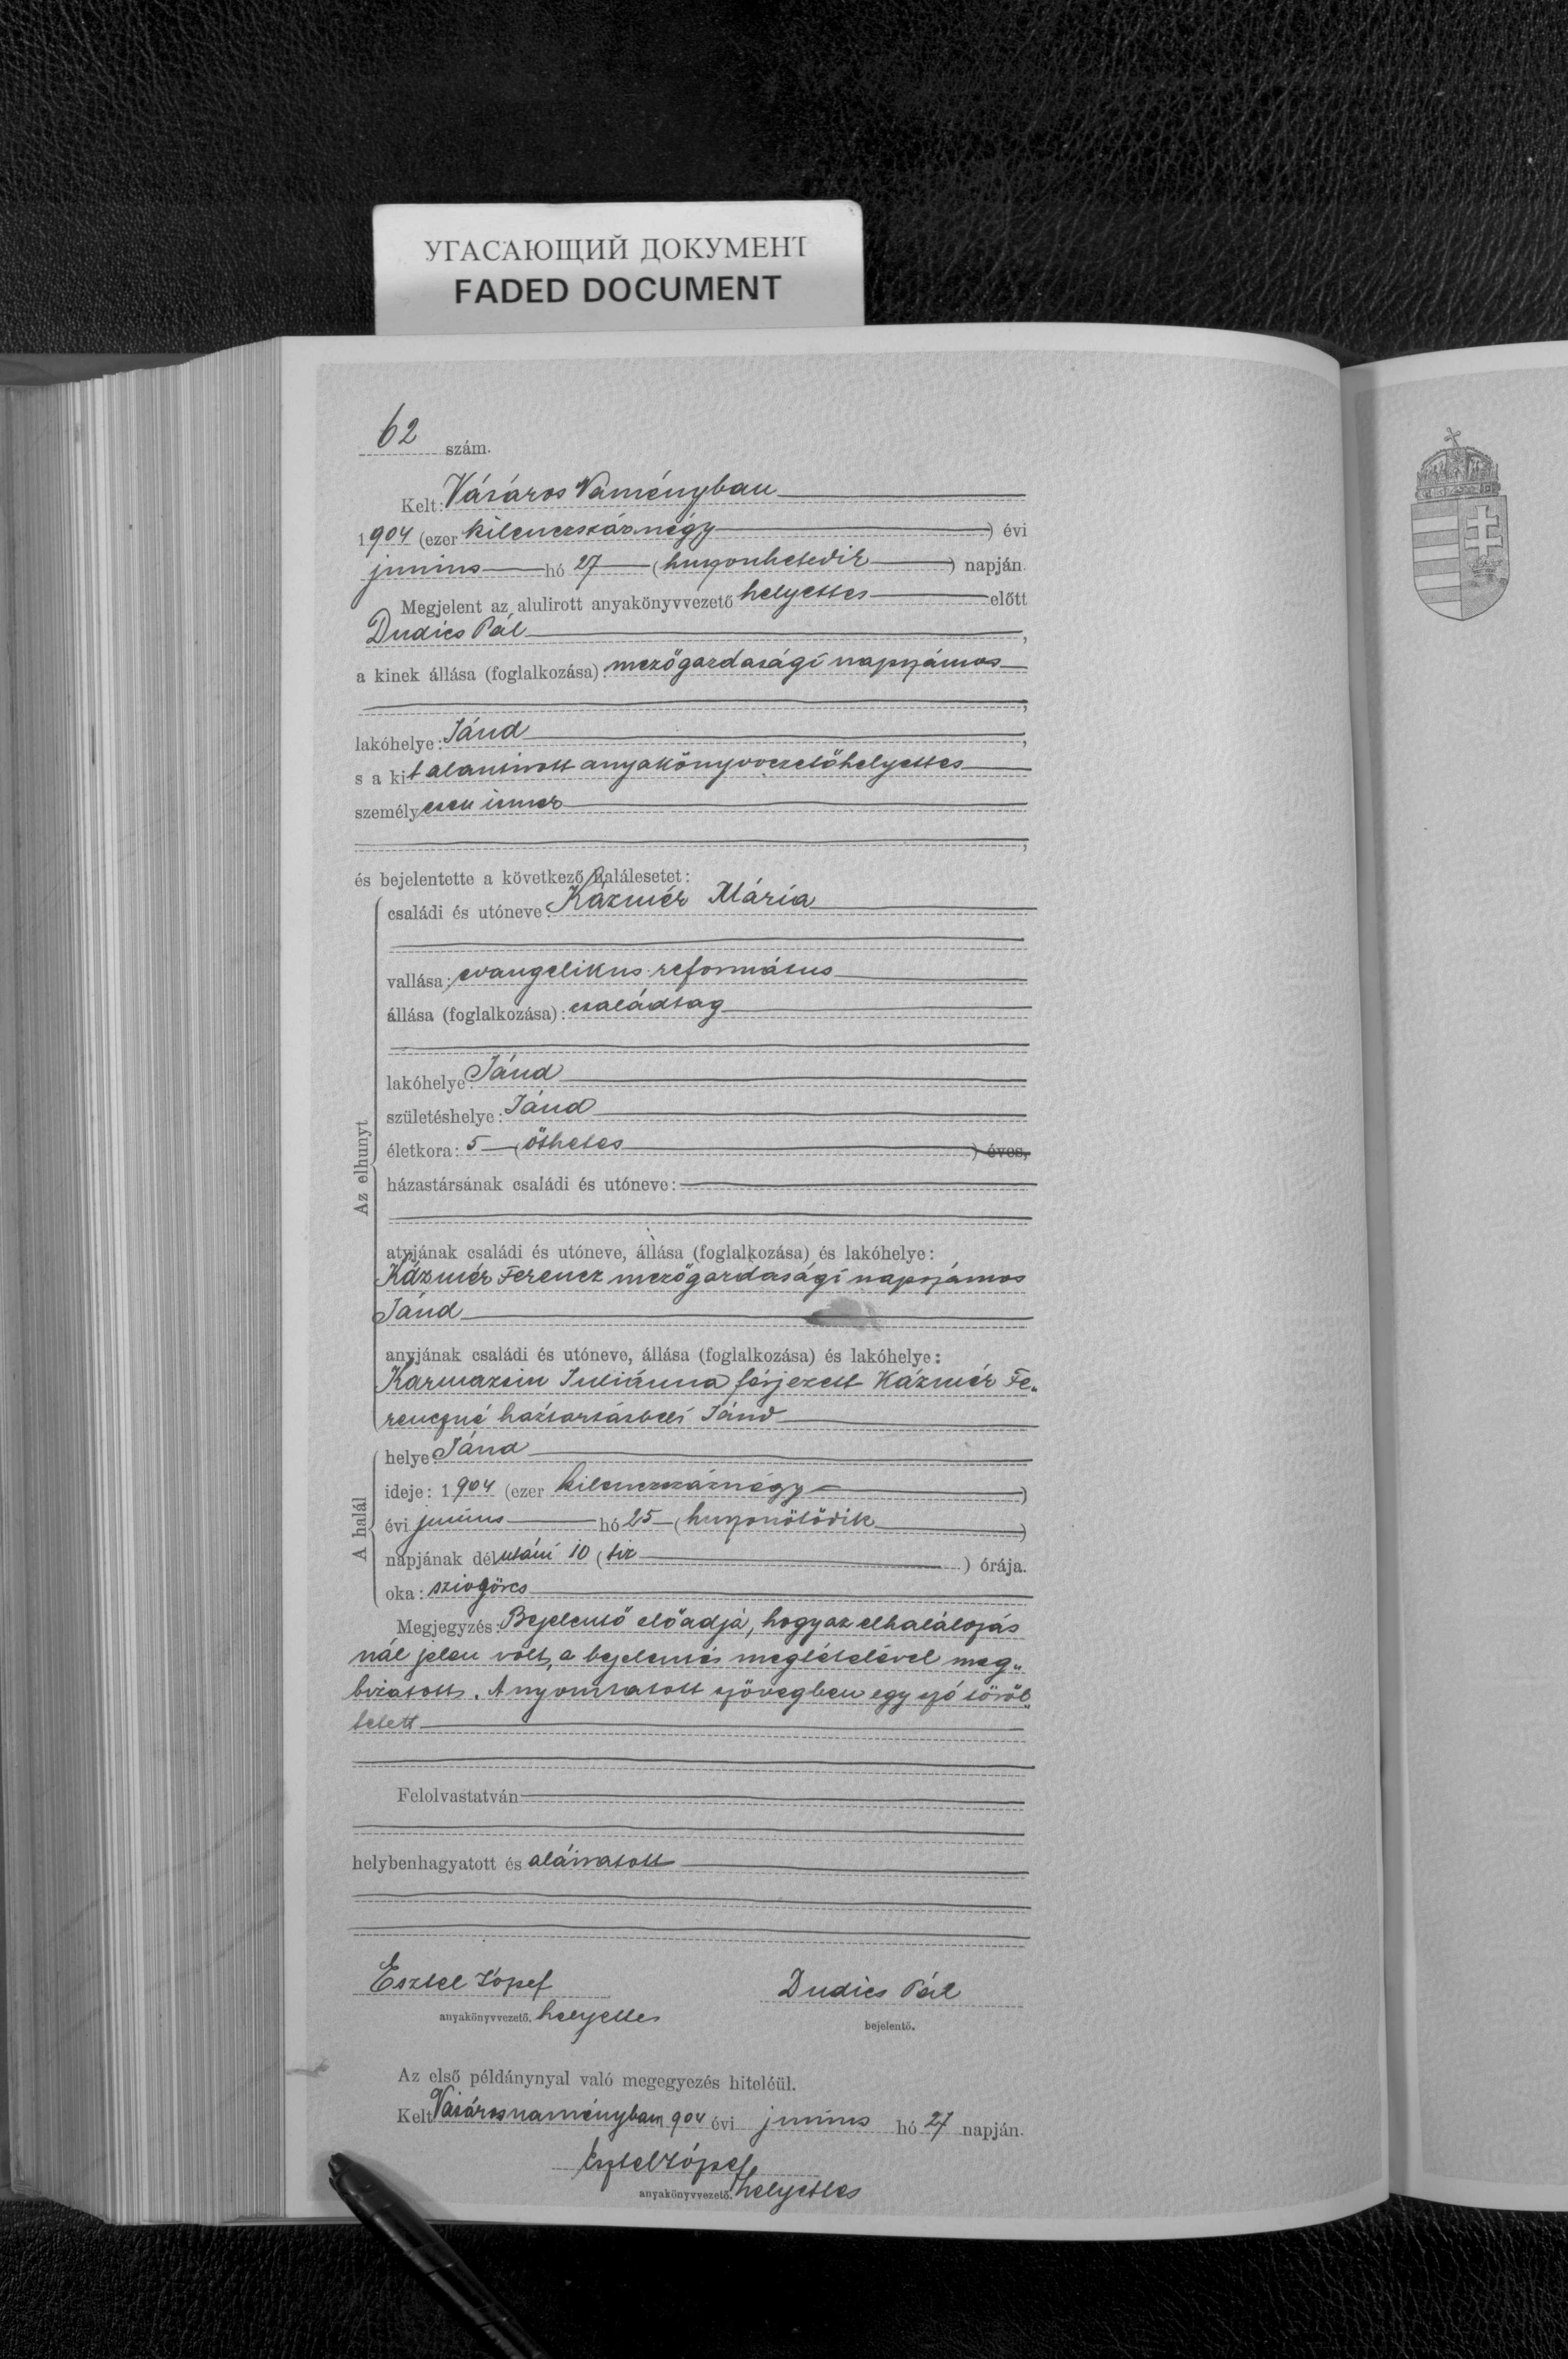 УГАСАЮЩИЙ ДОКУМЕНТ
FADED DOCUMENT
62 szám.
Kelt: Vásáros Naményban
1904 (ezer kilenczszáznégy) évi
junius hó 27 (huszonhetedik) napján.
Megjelent az alulirott anyakönyvvezető helyettes előtt
Dudics Pál,
a kinek állása (foglalkozása): mezőgazdasági napszámos
;
lakóhelye: Jánd,
s a kit alantirott anyakönyvvezetőhelyettes
személyesen ismer
,
és bejelentette a következő halálesetet:
Az elhunyt
családi és utóneve: Kázmér Mária
vallása: evangelikus református
állása (foglalkozása): családtag
lakóhelye: Jánd
születéshelye: Jánd
életkora: 5 (öthetes) éves,
házastársának családi és utóneve:
atyjának családi és utóneve, állása (foglalkozása) és lakóhelye:
Kázmér Ferencz mezőgazdasági napszámos
Jánd
anyjának családi és utóneve, állása (foglalkozása) és lakóhelye:
Karmazsin Juliánna férjezett Kázmér Fe„
renczné háztartásbeli Jánd
A halál
helye: Jánd
ideje: 1904 (ezer kilenczszáznégy)
évi junius hó 25 (huszonötödik)
napjának délutáni 10 (tiz) órája.
oka: szivgörcs
Megjegyzés: Bejelentő előadja, hogy az elhalálozás
nál jelen volt, a bejelentés megtételével meg„
bizatott. A nyomtatott szövegben egy szó töröl„
tetett
Felolvastatván
helybenhagyatott és aláiratott
Esztel József Dudics Pál
anyakönyvvezető. helyettes bejelentő.
Az első példánynyal való megegyezés hiteléül.
Kelt Vásárosnaményban 904 évi junius hó 27 napján.
Esztel József
anyakönyvvezető. helyettes